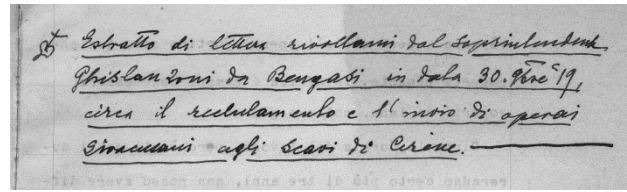 Estratto di lettera rivoltami dal Soprintendente
Ghislanzoni da Bengasi in data 30.9bre 19,
circa il reclutamento e l'invio di operai
agli scavi di Cirene.